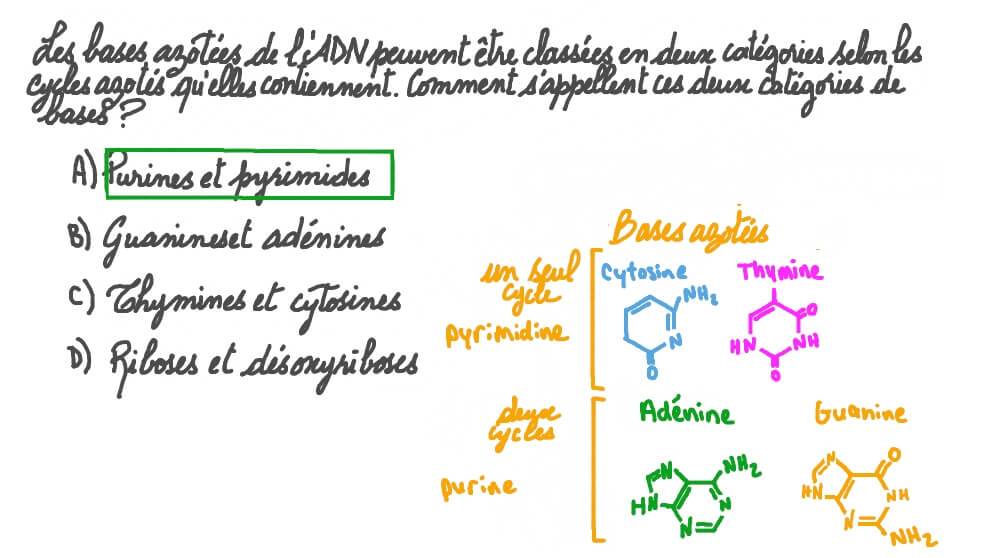 Les bases azotées de l'ADN peuvent être classées en deux catégories selon les
cycles azotés qu'elles contiennent. Comment s'appellent ces deux catégories de
bases ?
A) Purines et pyrimides
B) Guanines et adénines
C) Thymines et cytosines
D) Riboses et désoxyriboses
Bases azotées
un seul
cycle
pyrimidine
Cytosine
NH2
N
O
Thymine
O
HN
NH
O
deux
cycles
purine
Adénine
N
NH2
HN
N
N
Guanine
N
O
HN
NH
N
NH2